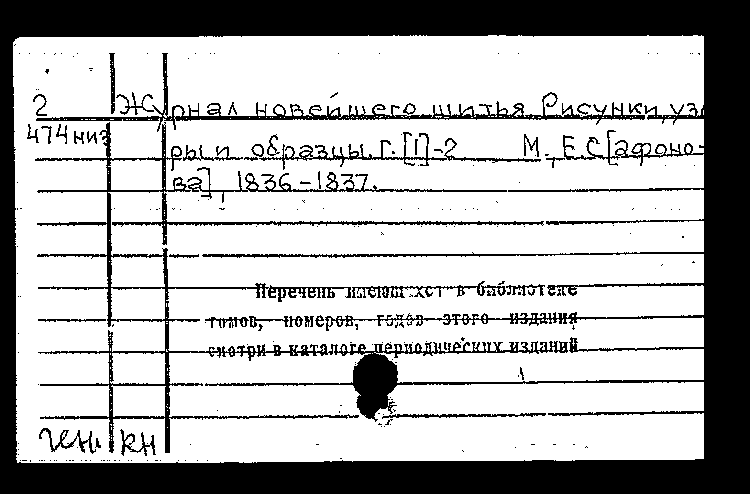 2 Журнал новейшего шитья. Рисунки, узо
474 низ
ры и образцы. Г. [1]-2 М., Е.С[афоно-
ва], 1836-1837.
Перечень имеющихся в библиотеке
томов, номеров, годов этого издания
смотри в каталоге периодических изданий
кн